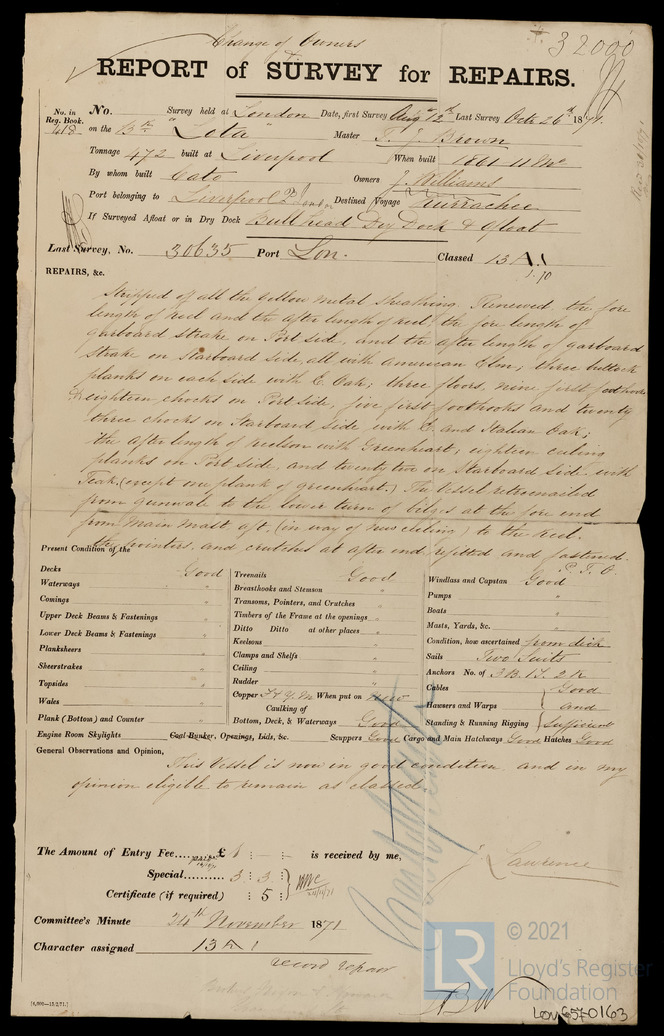 Change of Owners
32000
REPORT of SURVEY for REPAIRS.
No. in Reg. Book. 418
No. Survey held at London Date, first Survey Augt 12th Last Survey Octr 26th 1871
on the Bk "Lota" Master T. J. Brown
Tonnage 472 built at Liverpool When built 1861 11 Mo
By whom built Cato Owners J. Williams
Port belonging to Liverpool London Destined Voyage Kurrachee
If Surveyed Afloat or in Dry Dock Bull Head Dry Dock & Afloat
Last Survey, No. 30635 Port Lon. Classed 13 A 1
1.70
REPAIRS, &c.
Stripped of all the yellow metal sheathing. Renewed, the fore
length of keel and the after length of keel; the fore length of
garboard strake on Port side, and the after length of garboard
strake on Starboard side, all with American Elm; three buttock
planks on each side with E. Oak; three floors, nine first foothooks
& eighteen chocks on Port side, five first foothooks and twenty
three chocks on Starboard side with E. and Italian Oak;
the after length of keelson with Greenheart; eighteen ceiling
planks on Port side, and twenty two on Starboard side with
Teak, (except one plank of greenheart.) The Vessel retreenailed
from gunwale to the lower turn of bilges at the fore end
from Main Mast aft, (in way of new ceiling) to the keel.
the pointers, and crutches at after end refitted and fastened.
P.T.O
Present Condition of the
Decks Good
Waterways "
Comings "
Upper Deck Beams & Fastenings "
Lower Deck Beams & Fastenings "
Planksheers "
Sheerstrakes "
Topsides "
Wales "
Plank (Bottom) and Counter "
Engine Room Skylights
Treenails Good
Breasthooks and Stemson "
Transoms, Pointers, and Crutches "
Timbers of the Frame at the openings "
Ditto Ditto at other places "
Keelsons "
Clamps and Shelfs "
Ceiling "
Rudder "
Copper F & Y.M When put on new
Caulking of
Bottom, Deck, & Waterways Good
Coal Bunker, Openings, Lids, &c. Scuppers Good Cargo and Main Hatchways Good Hatches Good
Windlass and Capstan Good
Pumps "
Boats "
Masts, Yards, &c. "
Condition, how ascertained from dick
Sails Two Suits
Anchors No. of 3 B. 1 S. 2 K
Cables Good
Hawsers and Warps and
Standing & Running Rigging Sufficient
General Observations and Opinion,
This Vessel is now in good condition and in my
opinion eligible to remain as classed.
The Amount of Entry Fee £ 1 : - : - is received by me,
Special 3 : 3 :
Certificate (if required) : 5 :
J. Lawrence
Committee's Minute 24th November 1871
Character assigned 13 A 1
record repair
[4,000—15/2/71.]
© 2021
LR
Lloyd's Register
Foundation